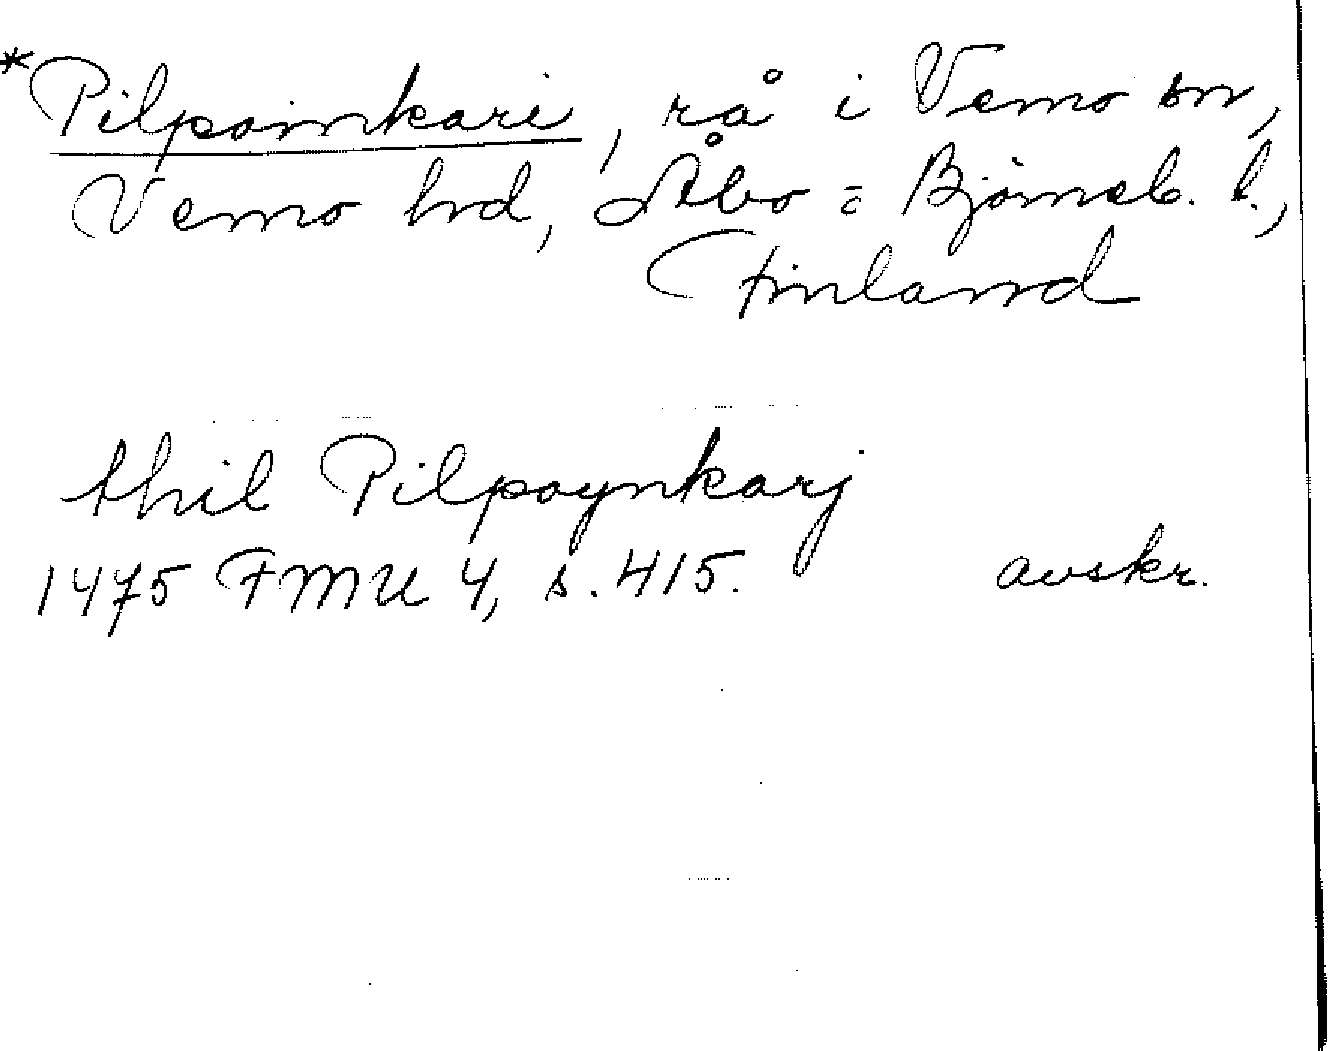 *Pilpoinkari, rå i Vemo sn,
Vemo hrd, Åbo = Björneb. l.,
Finland
thil Pilpoynkarj
1475 FMU 4, s. 415. avskr.